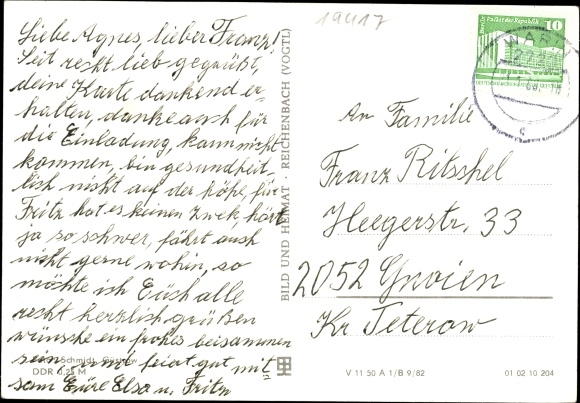 19417
Liebe Agnes, lieber Franz!
Seit recht lieb gegrüßt,
deine Karte dankend er-
halten, danke auch für
die Einladung, kann nicht
kommen, bin gesundheit-
lich nicht auf der höhe, für
Fritz hat es keinen Zwek, hört
ja so schwer, fährt auch
nicht gerne wohin, so
möchte ich Eüch alle
recht herzlich grüßen
wünsche ein frohes beisammen
sein, und feiert gut mit
sam Eüre Elsa u. Fritz
Schmidt,
DDR 0,25 M
BILD UND HEIMAT · REICHENBACH (VOGTL)
Berlin, Palast der Republik 10
WAR
An Familie
Franz Ritschel
Heegerstr. 33
2052 Gnoien
Kr Teterow
V 11 50 A 1/B 9/82
01 02 10 204